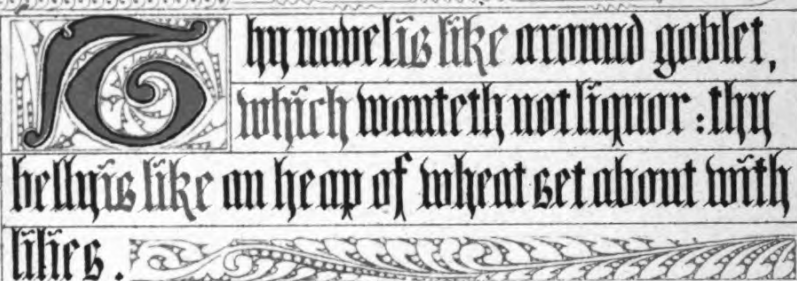 Thy navel is like a round goblet,
which wanteth not liquor: thy
belly is like an heap of wheat set about with
lilies.